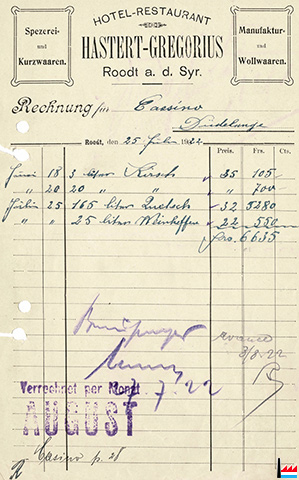 HOTEL-RESTAURANT
Spezerei-
und
Kurzwaaren.
HASTERT-GREGORIUS
Manufaktur-
und
Wollwaaren.
Roodt a. d. Syr.
Rechnung für Cassino
Dudelange
Roodt, den 25 Julin 1922
Preis. Frs. Cts.
Juni 18 3 liter Kirsch " 35 105-
" 20 20 " " " " 700-
Julin 25 165 liter Quetsch " 32 5280
" " 25 liter Weinheffen " 22 550
frs. 6635
3/8.22
7.7.22
Verrechnet per Monat
AUGUST
Casino p. 28